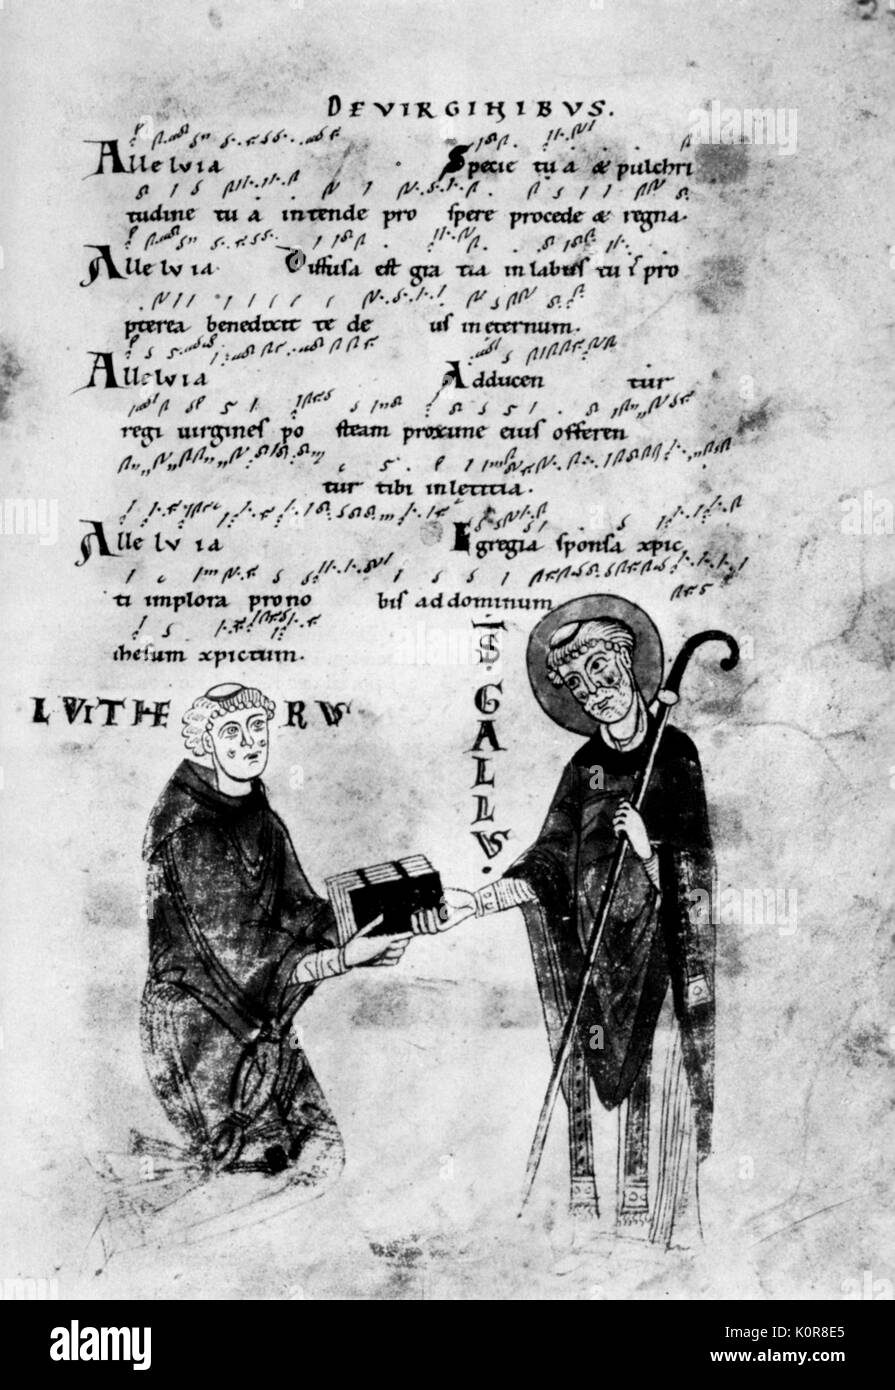 DE VIRGINIBVS.
Allelvia Specie tu a & pulchri
tudine tu a intende pro spere procede & regna.
Allelvia. Diffusa est gra tia in labiis tu is pro
pterea benedixit te de us in eternum.
Allelvia Adducen tur
regi uirgines po steam proxime eius offeren
tur tibi in leticia.
Allelvia Egregia sponsa xpic
ti implora pro no bis ad dominum
ihesum xpictum.
LVITHERVS
S. GALLVS.
alamy
Image ID: K0R8E5
www.alamy.com